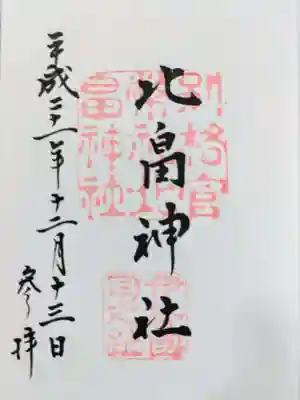 別格官
幣社北
畠神社
北畠神社
平成二十一年十二月十三日
参拝